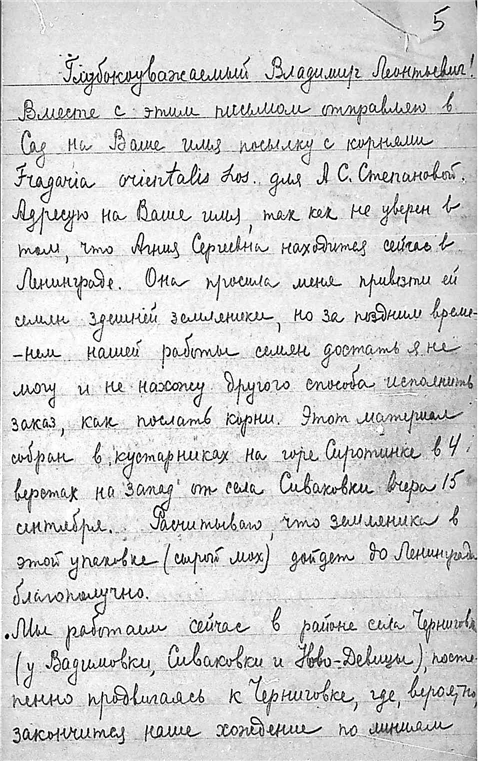 5
Глубокоуважаемый Владимир Леонтьевич!
Вместе с этим письмом отправляю в
Сад на Ваше имя посылку с корнями
Fragaria orientalis Los. для А С. Степановой.
Адресую на Ваше имя, так как не уверен в
том, что Агния Сергиевна находится сейчас в
Ленинграде. Она просила меня привезти ей
семян здешней земляники, но за поздним време-
-нем нашей работы семян достать я не
могу и не нахожу другого способа исполнить
заказ, как послать корни. Этот материал
собран в кустарниках на горе Сиротинке в 4
верстах на запад от села Сиваковки вчера 15
сентября. Расчитываю, что земляника в
этой упаковке (сырой мох) дойдет до Ленинграда
благополучно.
Мы работаем сейчас в районе села Черниговки
(у Вадимовки, Сиваковки и Ново-Девицы), посте-
пенно продвигаясь к Черниговке, где, вероятно,
закончится наше хождение по линиям